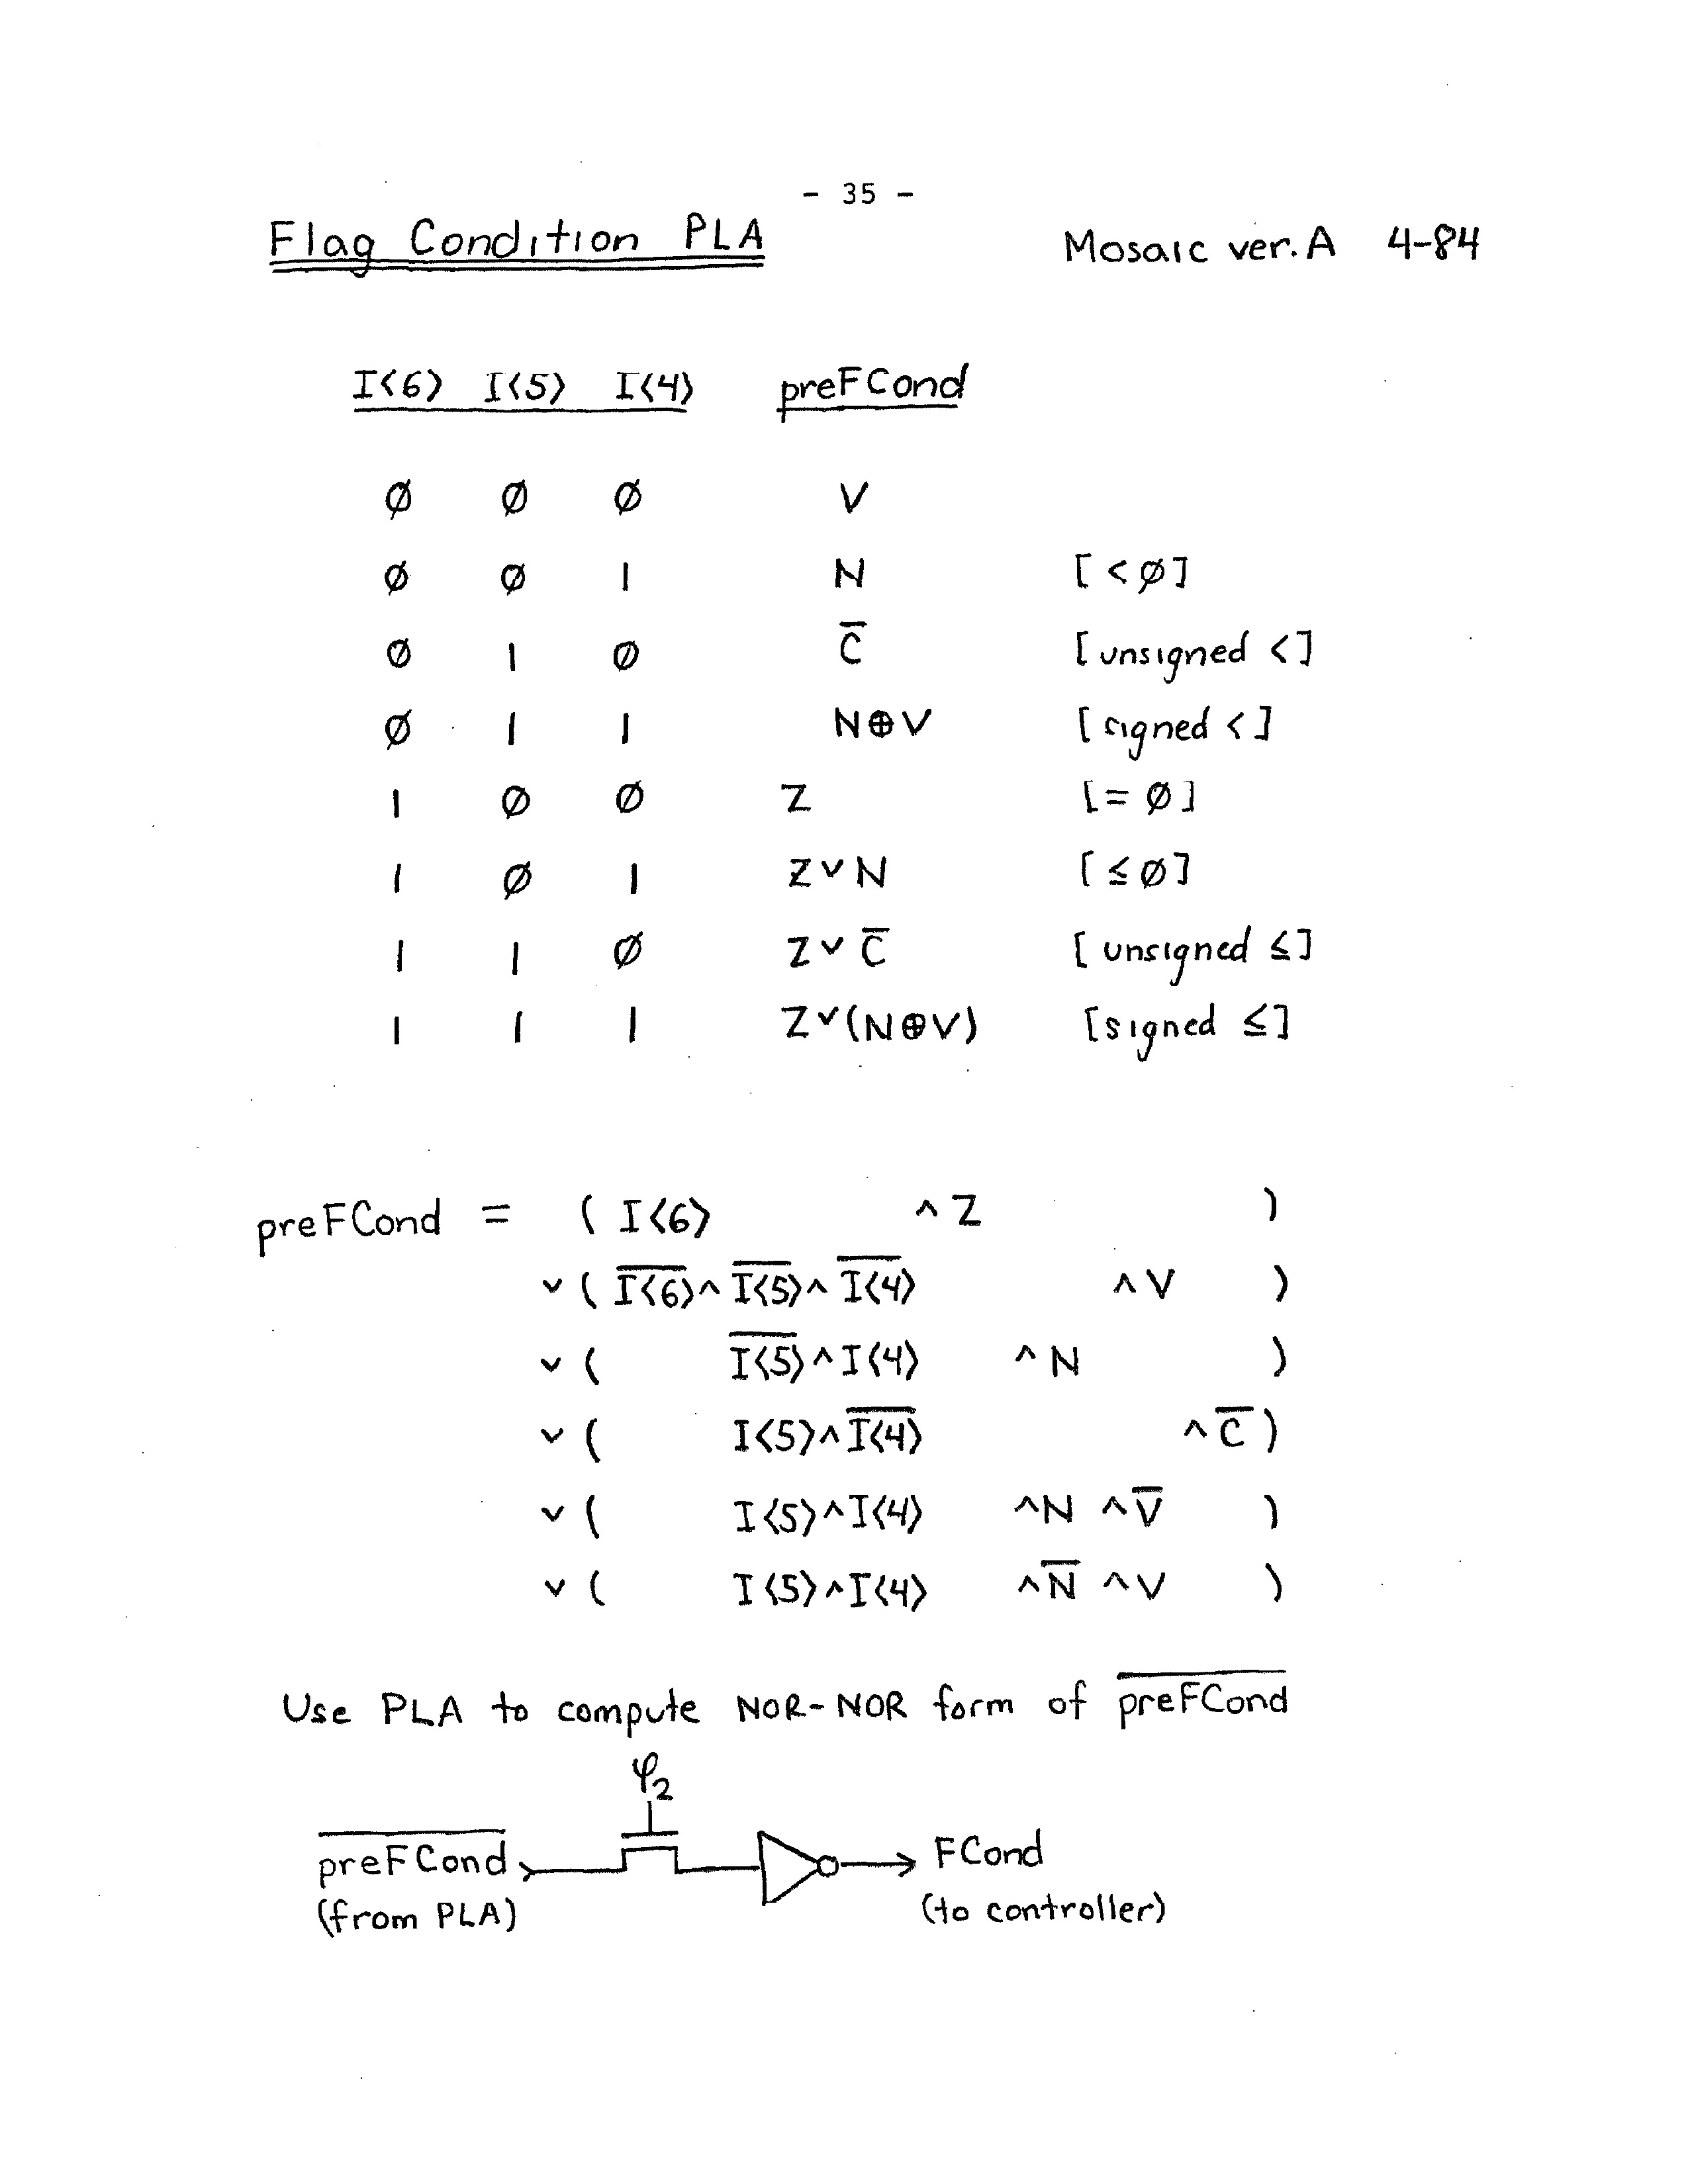 - 35 -
Flag Condition PLA Mosaic ver. A 4-84
I⟨6⟩ I⟨5⟩ I⟨4⟩ preFCond
Ø Ø Ø V
Ø Ø 1 N [<Ø]
Ø 1 Ø C̅ [unsigned <]
Ø 1 1 N⊕V [signed <]
1 Ø Ø Z [=Ø]
1 Ø 1 Z∨N [≤Ø]
1 1 Ø Z∨C̅ [unsigned ≤]
1 1 1 Z∨(N⊕V) [signed ≤]
preFCond = ( I⟨6⟩ ∧Z )
∨( I̅⟨̅6̅⟩̅∧I̅⟨̅5̅⟩̅∧I̅⟨̅4̅⟩̅ ∧V )
∨( I̅⟨̅5̅⟩̅∧I⟨4⟩ ∧N )
∨( I⟨5⟩∧I̅⟨̅4̅⟩̅ ∧C̅ )
∨( I⟨5⟩∧I⟨4⟩ ∧N ∧V̅ )
∨( I⟨5⟩∧I⟨4⟩ ∧N̅ ∧V )
Use PLA to compute NOR-NOR form of p̅r̅e̅F̅C̅o̅n̅d̅
φ₂
p̅r̅e̅F̅C̅o̅n̅d̅ FCond
(from PLA) (to controller)